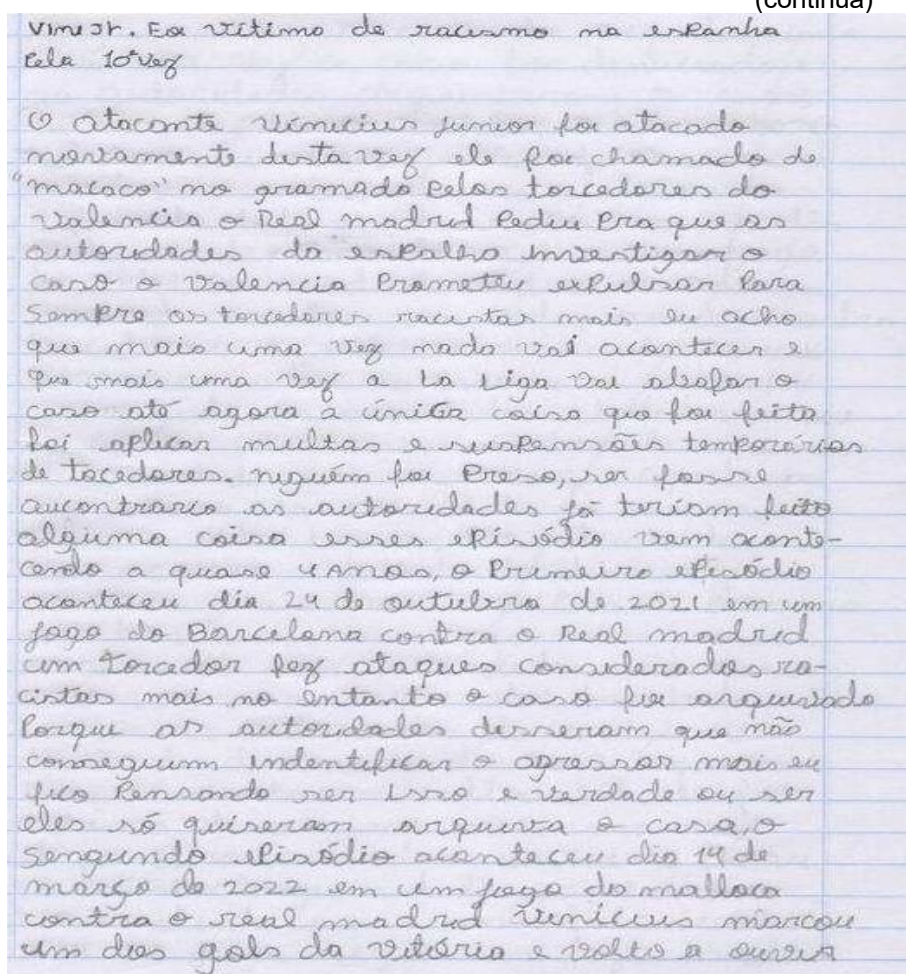 (continua)
Vini Jr. Foi vítima de racismo na espanha
Pela 10ª vez
O atacante vinicius junior foi atacado
novamente desta vez ele foi chamado de
"macaco" no gramado Pelos torcedores do
valencia o Real madrid Pediu Pra que as
autoridades da espalha investigar o
caso o valencia Prometeu expulsar Para
Sempre os torcedores racistas mais eu acho
que mais uma vez nada vai acontecer e
que mais uma vez a La Liga vai abafar o
caso até agora a única coisa que foi feita
foi aplicar multas e suspensões temporárias
de tocedores. niguém foi Preso, ser fosse
aucontrario as autoridades já teriam feito
alguma coisa esses episódio vem aconte-
cendo a quase 4 anos, o Primeiro episódio
aconteceu dia 24 de outubro de 2021 em um
jogo do Barcelona contra o Real madrid
um torcedor fez ataques considerados ra-
cistas mais no entanto o caso foi arquivado
Porque as autoridades disseram que não
conseguium indentificar o agressor mais eu
fico Pensando ser isso e verdade ou ser
eles só quiseram arquiva o caso, o
Sengundo episódio aconteceu dia 14 de
março de 2022 em um jogo do mallaca
contra o real madrid vinicius marcou
um dos gols da vitória e volto a ouvir